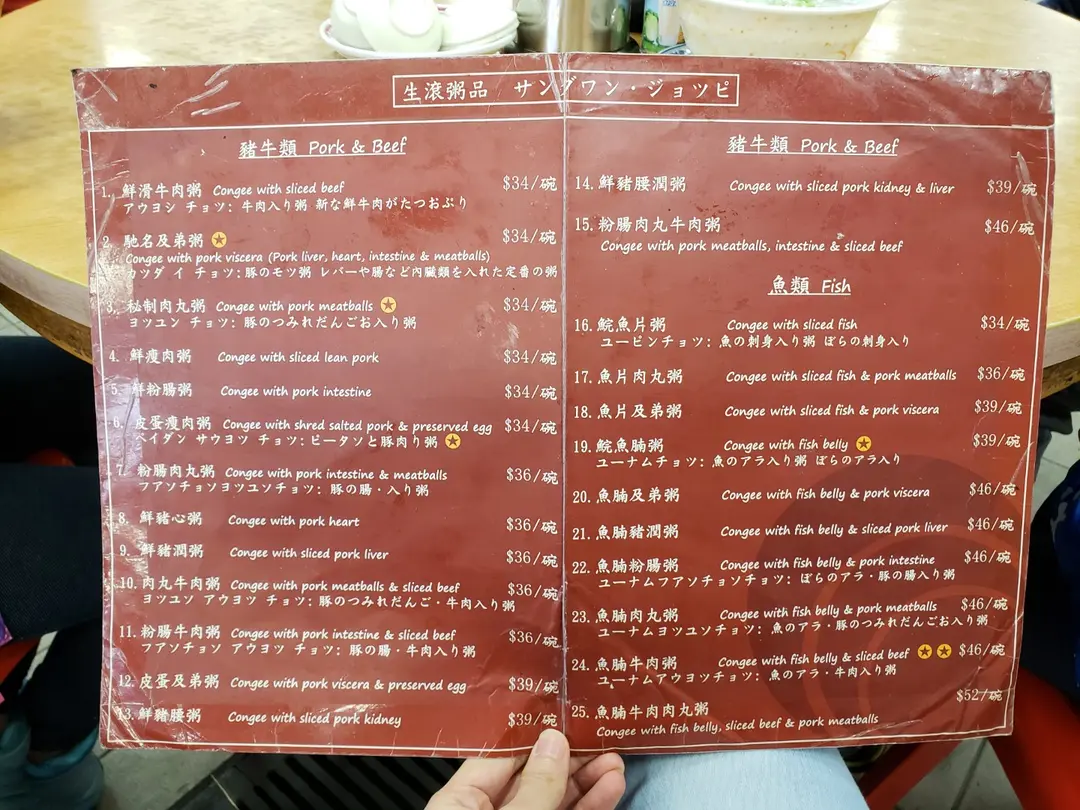 生滾粥品 サングワン・ジョツピ
豬牛類 Pork & Beef
1. 鮮滑牛肉粥 Congee with sliced beef $34/碗
アウヨシ チョツ: 牛肉入り粥 新な鮮牛肉がたつおぷり
2. 馳名及弟粥 $34/碗
Congee with pork viscera (Pork liver, heart, intestine & meatballs)
カツダ イ チョツ:豚のモツ粥 レバーや腸など内臓類を入れた定番の粥
3. 秘制肉丸粥 Congee with pork meatballs $34/碗
ヨツユン チョツ: 豚のつみれだんごお入り粥
4. 鮮瘦肉粥 Congee with sliced lean pork $34/碗
5. 鮮粉腸粥 Congee with pork intestine $34/碗
6. 皮蛋瘦肉粥 Congee with shred salted pork & preserved egg $34/碗
ペイダン サウヨツ チョツ: ピータソと豚肉り粥
7. 粉腸肉丸粥 Congee with pork intestine & meatballs $36/碗
フアソチョソヨツユソチョツ: 豚の腸・入り粥
8. 鮮豬心粥 Congee with pork heart $36/碗
9. 鮮豬潤粥 Congee with sliced pork liver $36/碗
10. 肉丸牛肉粥 Congee with pork meatballs & sliced beef $36/碗
ヨツユソ アウヨツ チョツ: 豚のつみれだんご・牛肉入り粥
11. 粉腸牛肉粥 Congee with pork intestine & sliced beef $36/碗
フアソチョソ アウヨツ チョツ: 豚の腸・牛肉入り粥
12. 皮蛋及弟粥 Congee with pork viscera & preserved egg $39/碗
13. 鮮豬腰粥 Congee with sliced pork kidney $39/碗
豬牛類 Pork & Beef
14. 鮮豬腰潤粥 Congee with sliced pork kidney & liver $39/碗
15. 粉腸肉丸牛肉粥 $46/碗
Congee with pork meatballs, intestine & sliced beef
魚類 Fish
16. 鯇魚片粥 Congee with sliced fish $34/碗
ユーピンチョツ: 魚の刺身入り粥 ぼらの刺身入り
17. 魚片肉丸粥 Congee with sliced fish & pork meatballs $36/碗
18. 魚片及弟粥 Congee with sliced fish & pork viscera $39/碗
19. 鯇魚腩粥 Congee with fish belly $39/碗
ユーナムチョツ: 魚のアラ入り粥 ぼらのアラ入り
20. 魚腩及弟粥 Congee with fish belly & pork viscera $46/碗
21. 魚腩豬潤粥 Congee with fish belly & sliced pork liver $46/碗
22. 魚腩粉腸粥 Congee with fish belly & pork intestine $46/碗
ユーナムフアソチョソチョツ: ぼらのアラ・豚の腸入り粥
23. 魚腩肉丸粥 Congee with fish belly & pork meatballs $46/碗
ユーナムヨツユソチョツ: 魚のアラ・豚のつみれだんごお入り粥
24. 魚腩牛肉粥 Congee with fish belly & sliced beef $46/碗
ユーナムアウヨツチョツ: 魚のアラ・牛肉入り粥
25. 魚腩牛肉肉丸粥 $52/碗
Congee with fish belly, sliced beef & pork meatballs